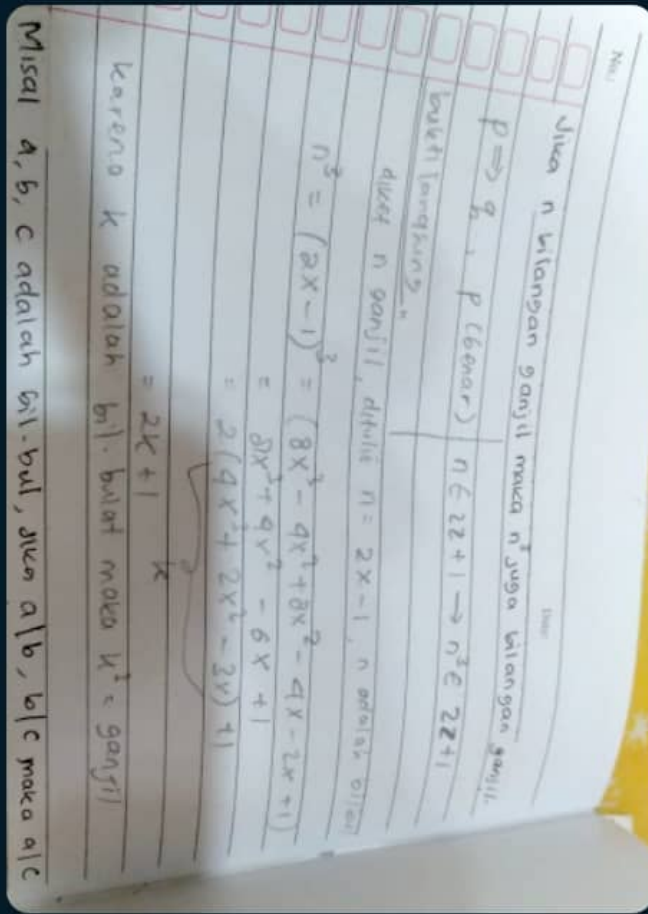 No:
Date:
Jika n bilangan ganjil maka n³ juga bilangan ganjil.
p ⇒ q, p (benar) | n ∈ 2Z+1 → n³ ∈ 2Z+1
bukti langsung"
diket n ganjil, ditulis n = 2x-1, n adalah
n³ = (2x-1)³ = (8x³ - 4x² + 8x² - 4x - 2x + 1)
= 8x³ + 4x² - 6x + 1
= 2(4x³ + 2x² - 3x) + 1
k
= 2k+1
karena k adalah bil. bulat maka k² = ganjil
Misal a, b, c adalah bil-bul, jika a|b, b|c maka a|c